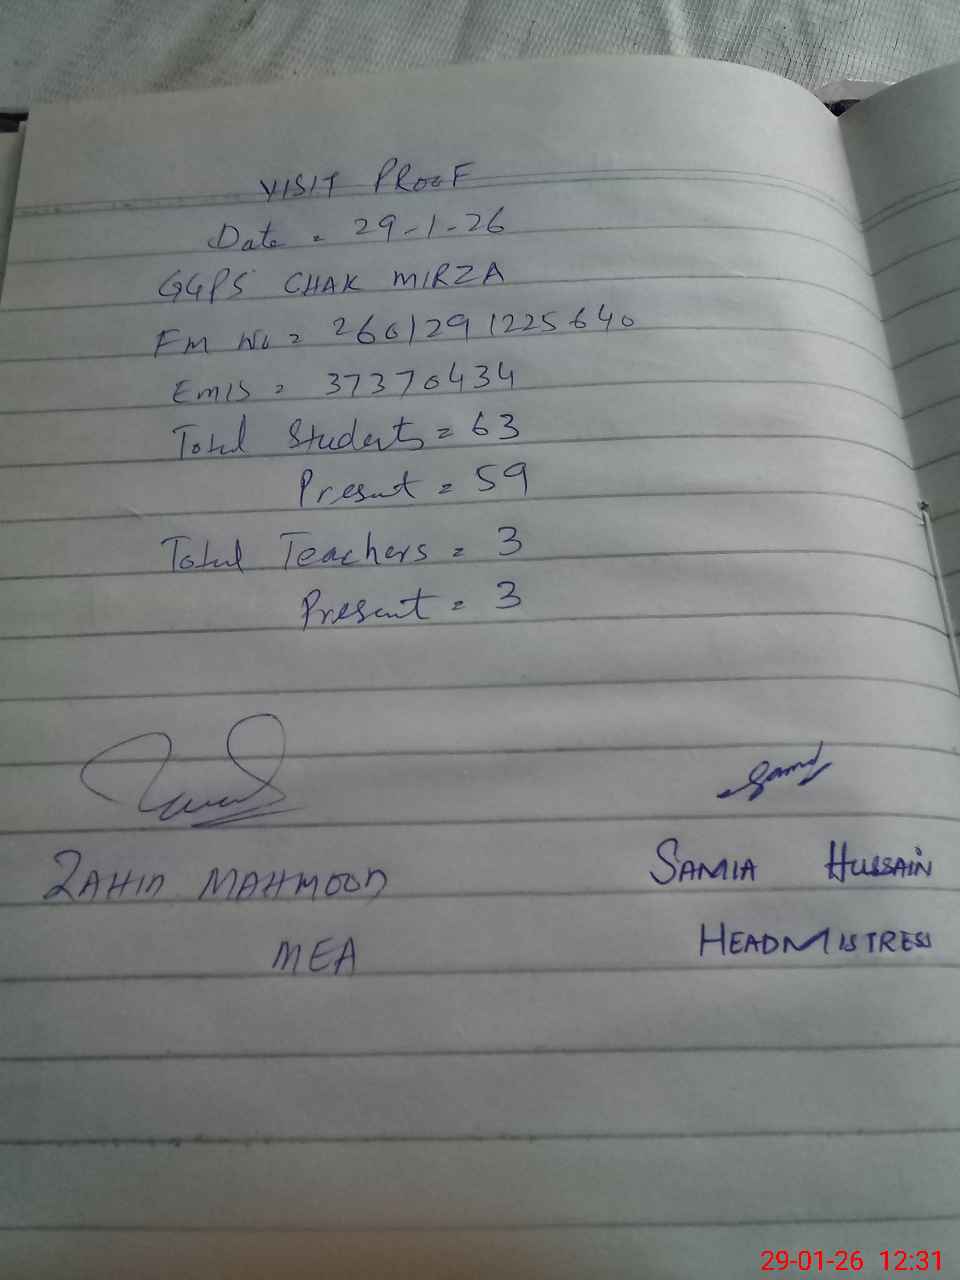 VISIT PROOF
Date = 29-1-26
GGPS CHAK MIRZA
FM No = 2601291225640
EMIS = 37370434
Total Students = 63
Present = 59
Total Teachers = 3
Present = 3
ZAHID MAHMOOD
SAMIA HUSSAIN
MEA
HEADMISTRESS
29-01-26 12:31